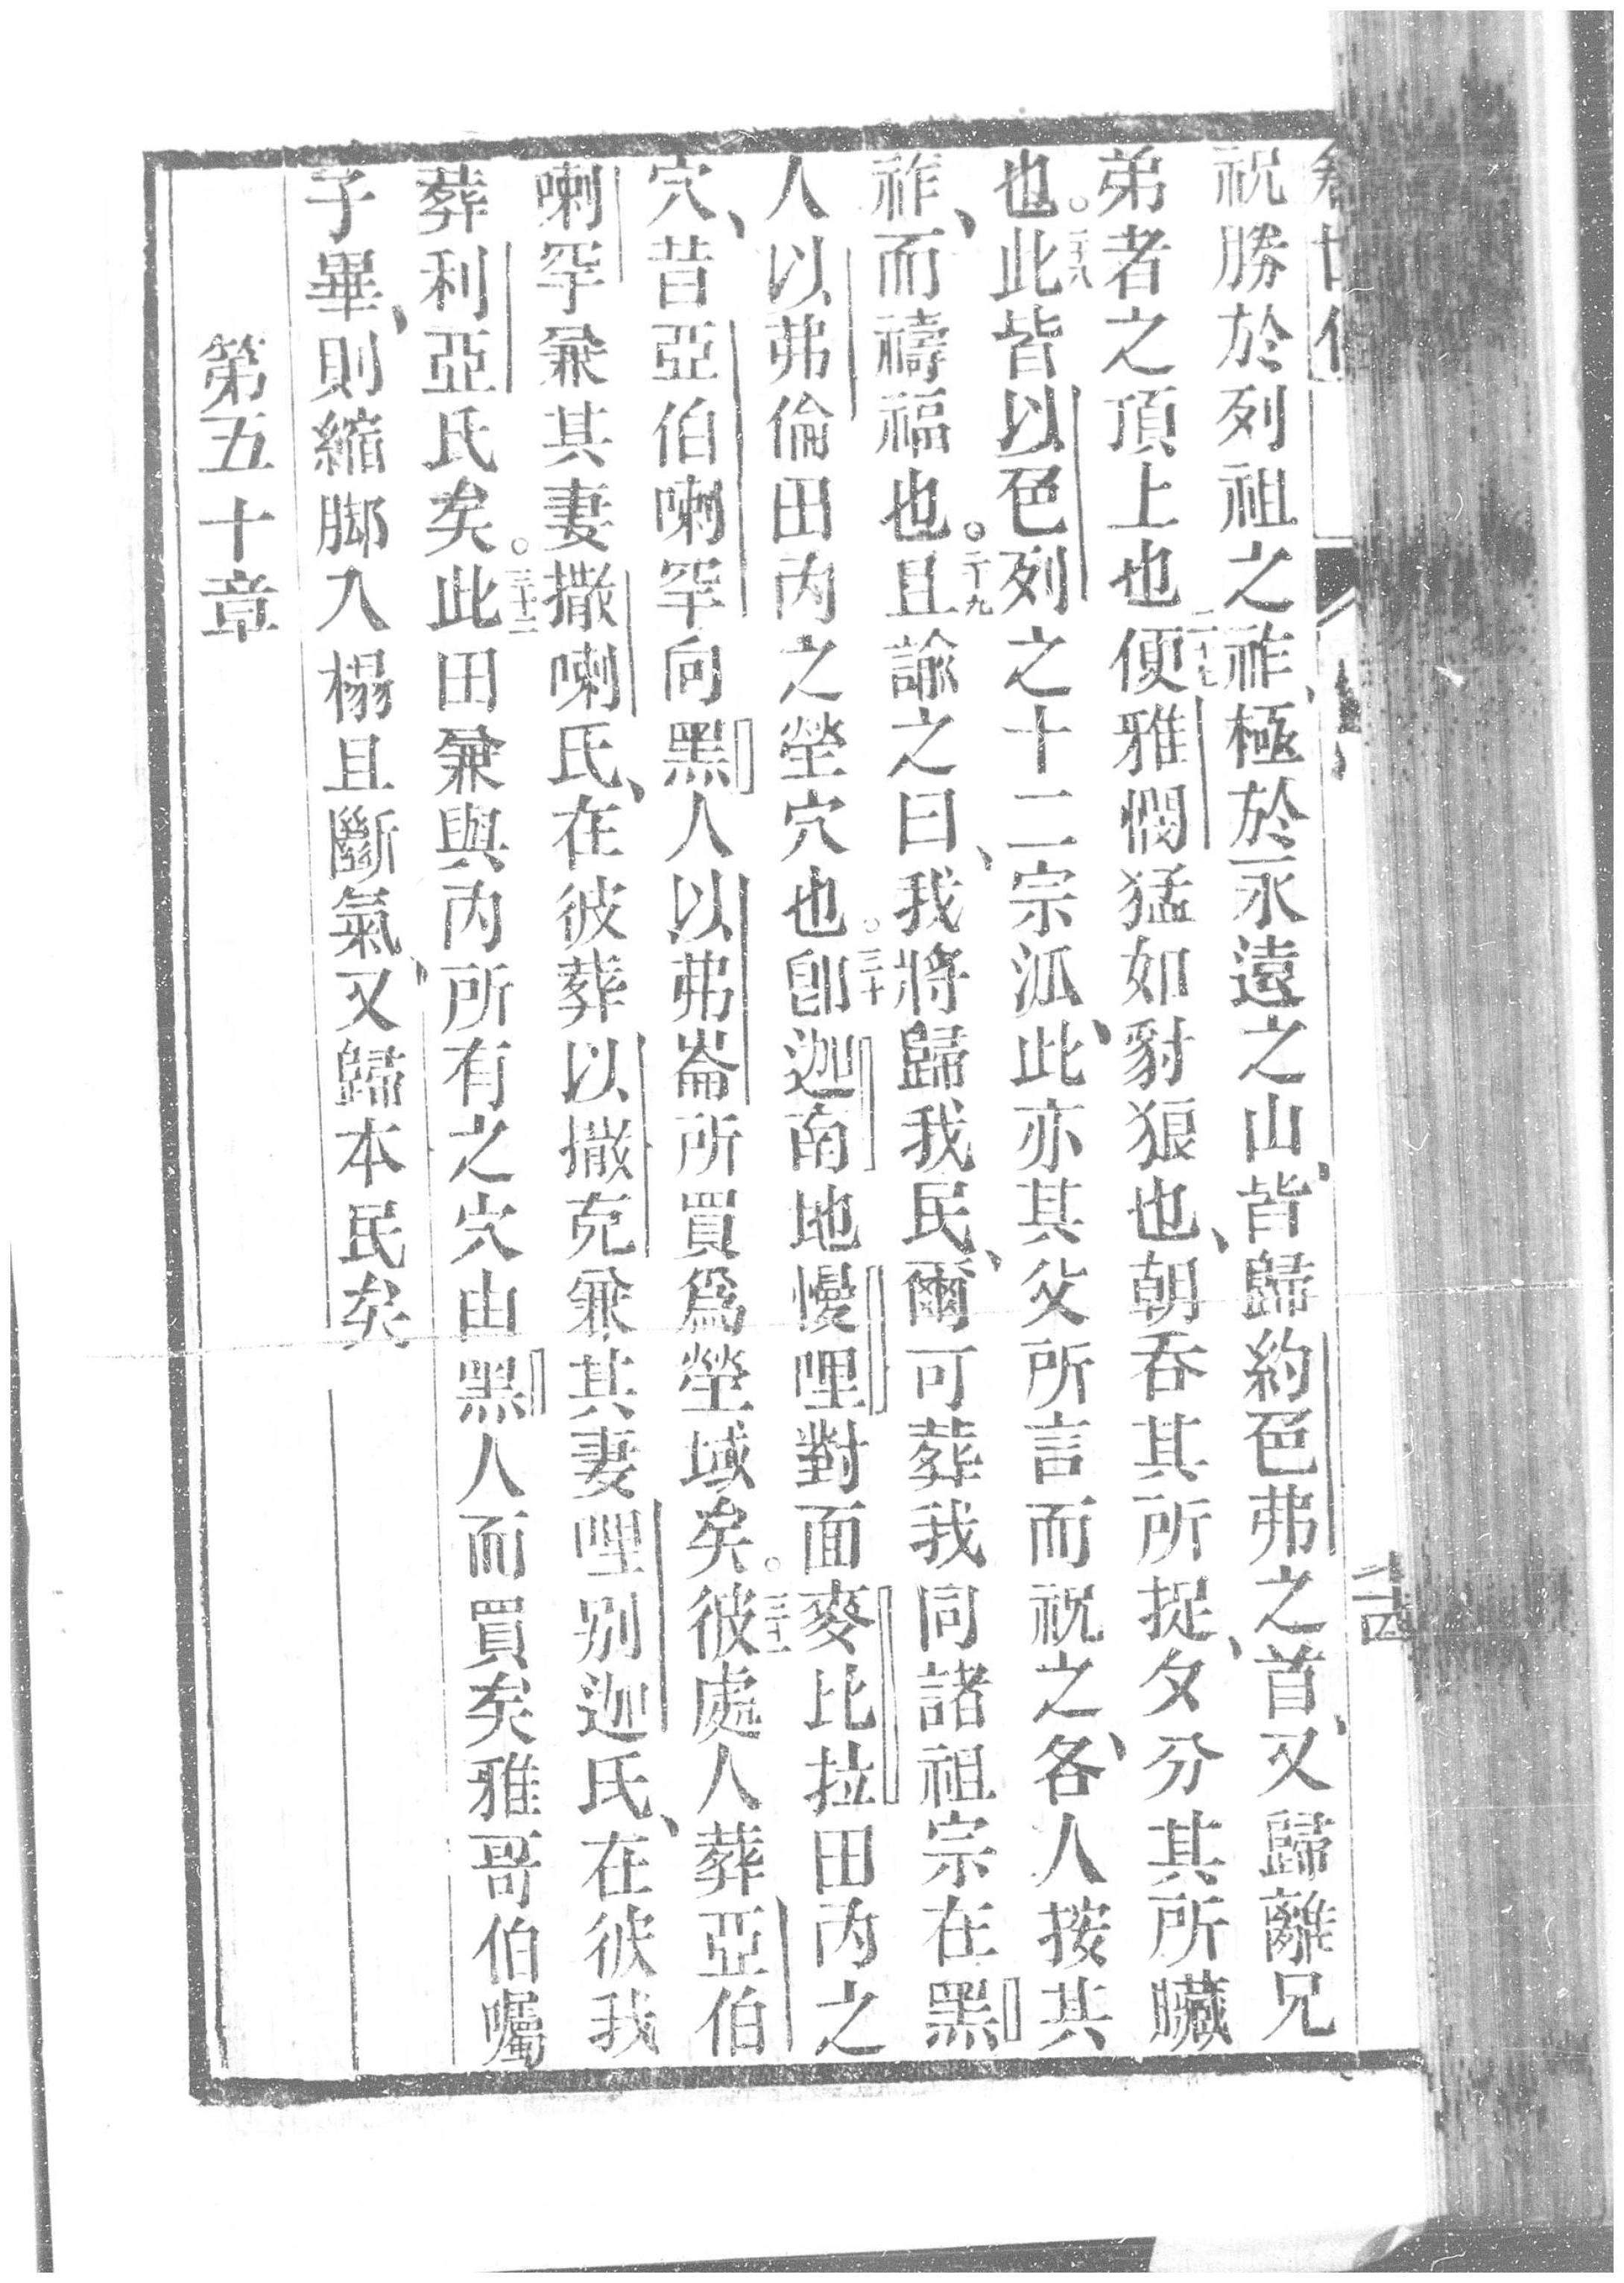 祝勝於列祖之祚、極於永遠之山、皆歸約色弗之首、又歸離兄
弟者之頂上也便雅憫猛如豺狼也、朝吞其所捉、夕分其所臟
也。二十八此皆以色列之十二宗派、此亦其父所言而祝之、各人按其
祚、而禱福也。二十九且諭之曰、我將歸我民、爾可葬我同諸祖宗在黑
人以弗倫田內之塋穴也。三十卽迦南地慢哩對面麥比拉田內之
穴、昔亞伯喇罕向黑人以弗崙所買爲塋域矣。三十一彼處人葬亞伯
喇罕兼其妻撒喇氏、在彼葬以撒克兼其妻哩别迦氏、在彼我
葬利亞氏矣。三十二此田兼與內所有之穴由黑人而買矣雅哥伯囑
子畢、則縮脚入榻且斷氣、又歸本民矣
第五十章